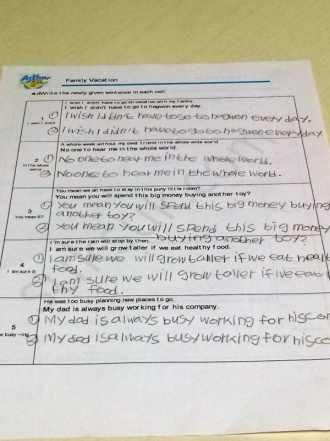 Arthur
Family Vacation
Write the newly given sentence in each cell.
I wish I didn't have to go on vacation with my family.
I wish I didn't have to go to hagwon every day.
1
I wish I didn't
① I wish I didn't have to go to hagwon every day.
② I wish I didn't have to go to hagwon every day
A whole week without my best friend in the whole wide world
No one to hear me in the whole world.
2
in the whole world
① No one to hear me in the whole world.
② No one to hear me in the whole world.
You mean we all have to stay in this puny little room?
You mean you will spend this big money buying another toy?
3
You mean S?
① You mean You will spend this big money buying
another toy?
② You mean You will spend this big money
buying another toy?
I'm sure the rain will stop by then.
I am sure we will grow taller if we eat healthy food.
4
I am sure S
① I am sure we will grow taller if we eat heal
food.
② I am sure we will grow taller if we eat
thy food.
He was too busy planning new places to go.
My dad is always busy working for his company.
5
busy ~ing
① My dad is always busy working for his co
② My dad is always busy working for his co